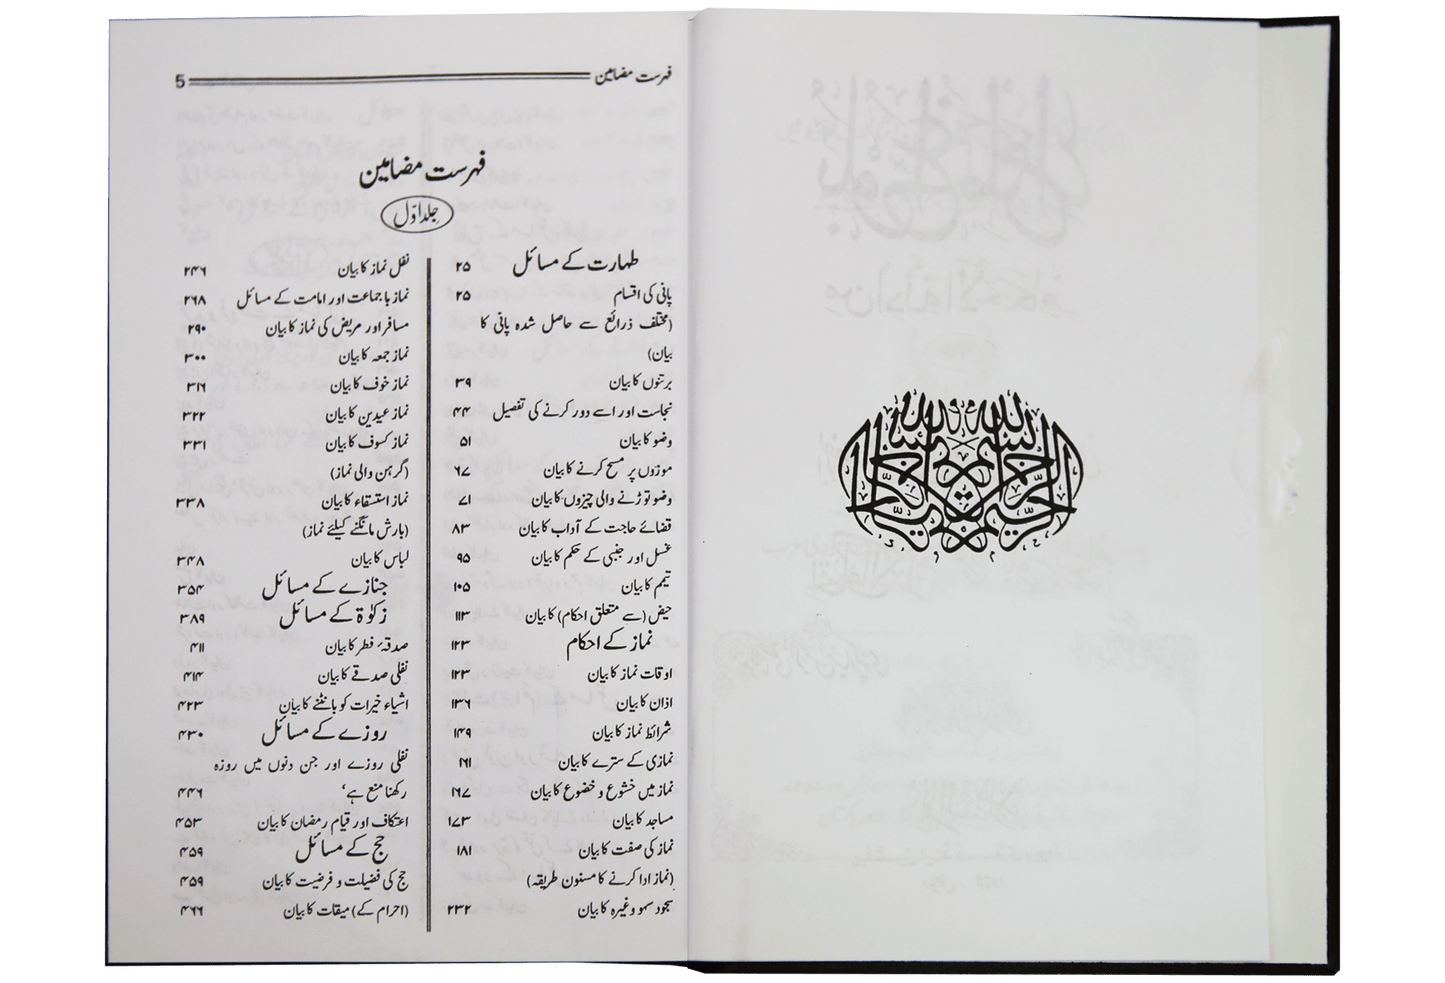 بسم الله الرحمن الرحيم
فہرست مضامین 5
فہرست مضامین
جلد اوّل
طہارت کے مسائل ۲۵
پانی کی اقسام ۲۵
(مختلف ذرائع سے حاصل شدہ پانی کا
بیان)
برتنوں کا بیان ۳۹
نجاست اور اسے دور کرنے کی تفصیل ۴۴
وضو کا بیان ۵۱
موزوں پر مسح کرنے کا بیان ۶۷
وضو توڑنے والی چیزوں کا بیان ۷۱
قضائے حاجت کے آداب کا بیان ۸۳
غسل اور جنبی کے حکم کا بیان ۹۵
تیمم کا بیان ۱۰۵
حیض (سے متعلق احکام) کا بیان ۱۱۳
نماز کے احکام ۱۲۳
اوقات نماز کا بیان ۱۲۳
اذان کا بیان ۱۳۶
شرائط نماز کا بیان ۱۴۹
نمازی کے سترے کا بیان ۱۶۱
نماز میں خشوع و خضوع کا بیان ۱۶۷
مساجد کا بیان ۱۷۳
نماز کی صفت کا بیان ۱۸۱
(نماز ادا کرنے کا مسنون طریقہ)
سجود سہو وغیرہ کا بیان ۲۳۲
نفل نماز کا بیان ۲۴۶
نماز با جماعت اور امامت کے مسائل ۲۶۸
مسافر اور مریض کی نماز کا بیان ۲۹۰
نماز جمعہ کا بیان ۳۰۰
نماز خوف کا بیان ۳۱۶
نماز عیدین کا بیان ۳۲۲
نماز کسوف کا بیان ۳۳۱
(گرہن والی نماز)
نماز استسقاء کا بیان ۳۳۸
(بارش مانگنے کیلئے نماز)
لباس کا بیان ۳۴۸
جنازے کے مسائل ۳۵۴
زکوٰۃ کے مسائل ۳۸۹
صدقۂ فطر کا بیان ۴۱۱
نفلی صدقے کا بیان ۴۱۴
اشیاء خیرات کو بانٹنے کا بیان ۴۲۳
روزے کے مسائل ۴۳۰
نفلی روزے اور جن دنوں میں روزہ
رکھنا منع ہے، ۴۴۶
اعتکاف اور قیام رمضان کا بیان ۴۵۳
حج کے مسائل ۴۵۹
حج کی فضیلت و فرضیت کا بیان ۴۵۹
(احرام کے) میقات کا بیان ۴۶۶